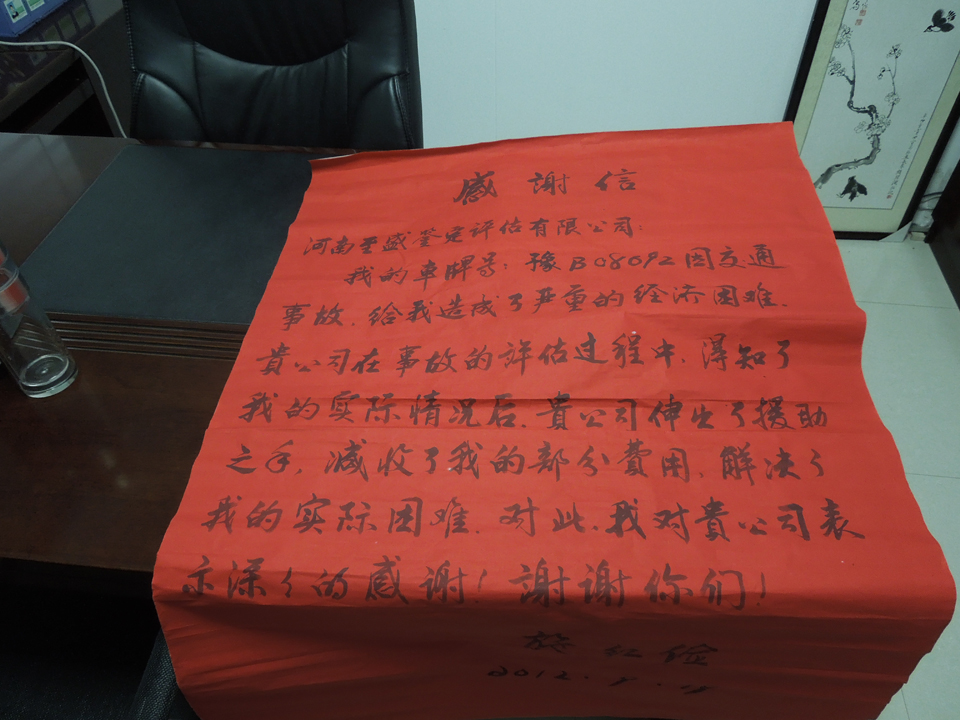 感謝信
河南至盛鉴定评估有限公司：
我的車牌号：豫B08092因交通
事故，给我造成了严重的经济困难．
貴公司在事故的评估过程中，得知了
我的实际情况后，貴公司伸出了援助
之手，减收了我的部分費用，解决了
我的实际困难．对此，我对貴公司表
示深々的感谢！謝谢你们！
2012.